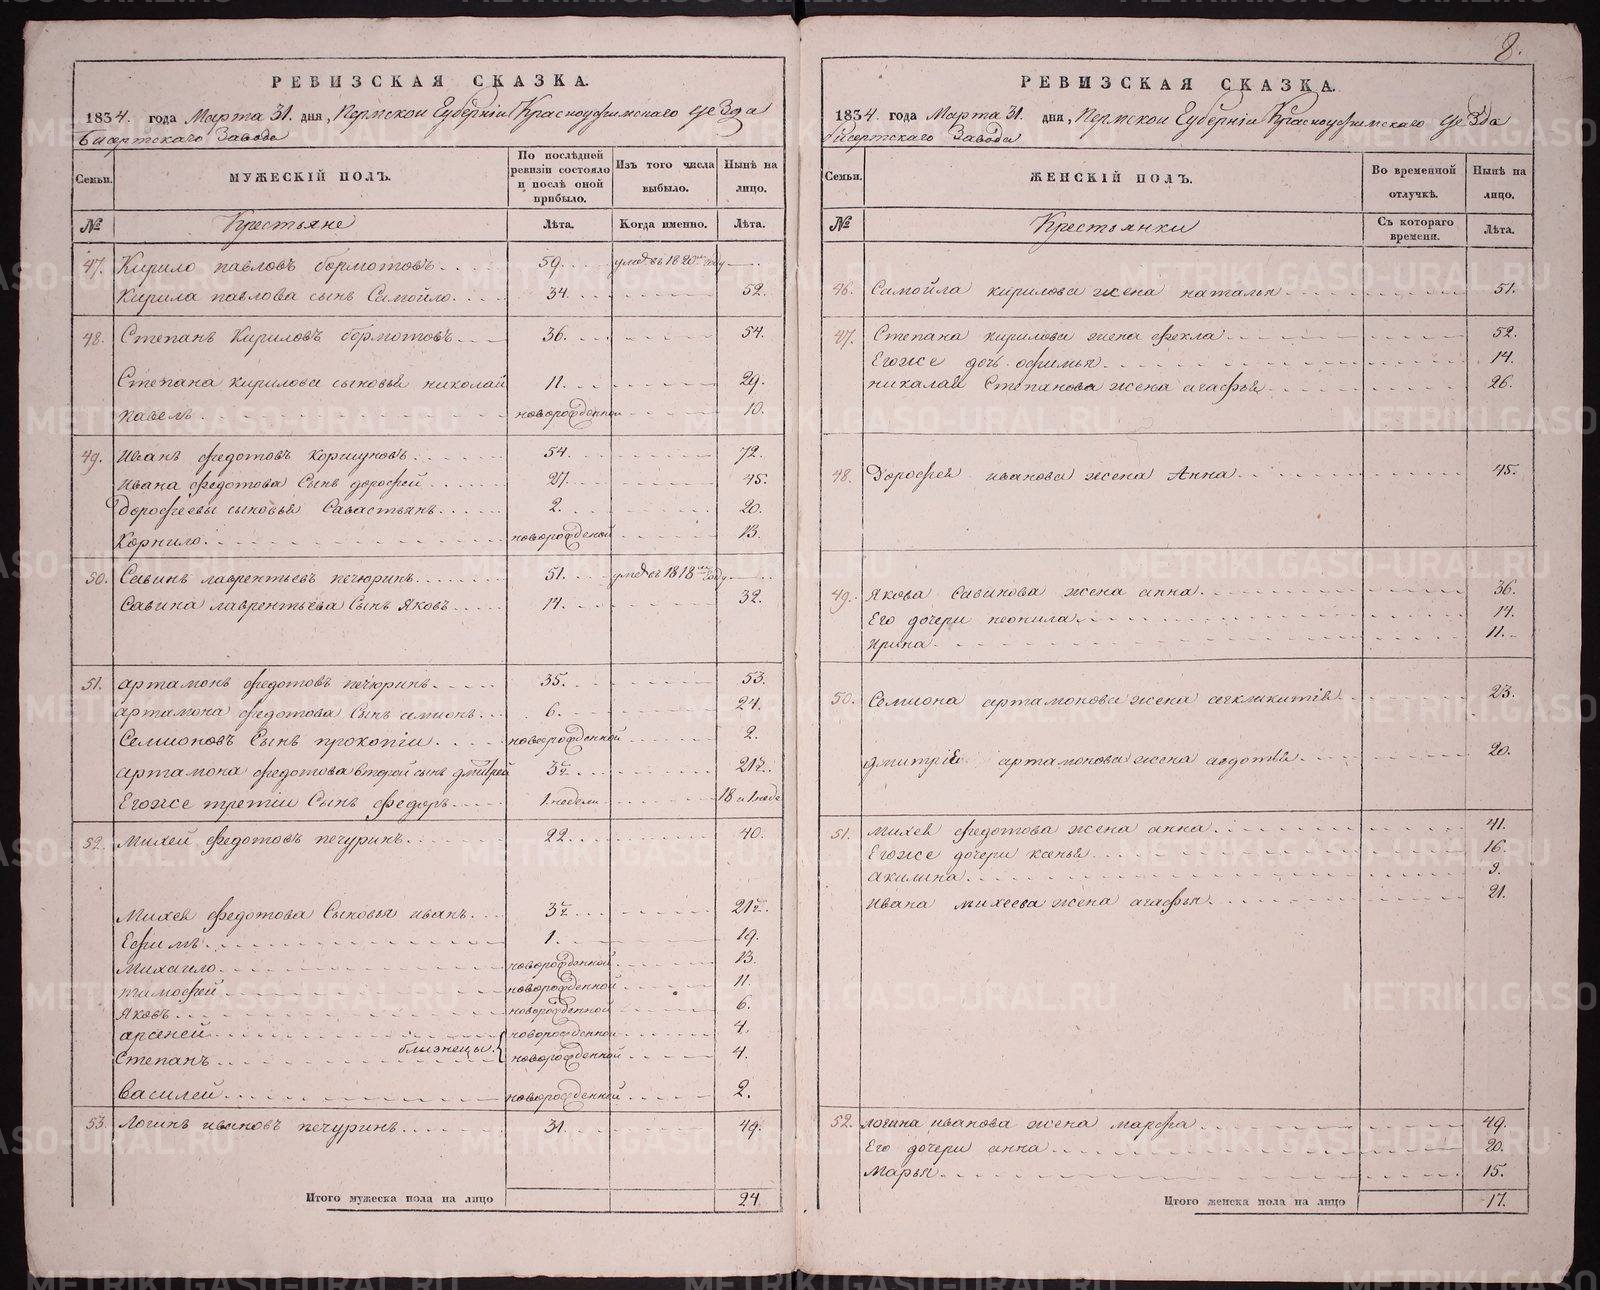 8.
РЕВИЗСКАЯ СКАЗКА.
1834. года Марта 31. дня, Пермской Губерніи Красноуфимскаго уезда
Бисертскаго Завода
Семьи. МУЖЕСКІЙ ПОЛЪ. По послѣдней ревизіи состояло и послѣ оной прибыло. Изъ того числа выбыло. Нынѣ на лицо.
№ Крестьяне Лѣта. Когда именно. Лѣта.
47. Кирило павловъ бормотовъ 59. умеръ въ 1820мъ году
Кирила павлова сынъ Самойло 34. 52.
48. Степанъ Кириловъ бормотовъ 36. 54.
Степана кирилова сыновья николай 11. 29.
павелъ новорожденной 10.
49. Иванъ федотовъ коршуновъ 54. 72.
Ивана федотова Сынъ дорофей 27. 45.
дорофеевы сыновья Савастьянъ 2. 20.
Корнило новорожденой 13.
50. Савинъ лаврентьевъ печюринъ 51. умеръ въ 1818мъ году
Савина лаврентьева Сынъ Яковъ 14. 32.
51. артамонъ федотовъ печюринъ 35. 53.
артамона федотова Сынъ семионъ 6. 24.
Семионовъ Сынъ прокопіи новорожденной 2.
артамона федотова второй сынъ дмитрей 3½ 21½
Егоже третіи Сынъ федоръ 1 недели 18 и 1 неде
52. Михей федотовъ печуринъ 22. 40.
Михея федотова Сыновья иванъ 3½ 21½
Ефимъ 1. 19.
Михаило новорожденной 13.
тимофей новорожденной 11.
Яковъ новорожденной 6.
арсеней новорожденной 4.
близнецы
Степанъ новорожденной 4.
Василей новорожденной 2.
53. Логинъ ивановъ печуринъ 31. 49.
Итого мужеска пола на лицо 24.
РЕВИЗСКАЯ СКАЗКА.
1834. года Марта 31. дня, Пермской Губерніи Красноуфимскаго уезда
Бисертскаго Завода
Семьи. ЖЕНСКІЙ ПОЛЪ. Во временной отлучкѣ. Нынѣ на лицо.
№ Крестьянки Съ котораго времени. Лѣта.
46. Самойла кирилова жена наталья 51.
47. Степана кирилова жена фекла 52.
Егоже дочь офимья 14.
николая Степанова жена агафья 26.
48. Дорофея иванова жена Анна 45.
49. Якова Савинова жена анна 36.
Его дочери неонила 14.
Ирина 11.
50. Семиона артамонова жена 23.
дмитрія артамонова жена авдотья 20.
51. михея федотова жена анна 41.
Егоже дочери ксенья 16.
акилина 9.
Ивана михеева жена агафья 21.
52. логина иванова жена марфа 49.
Его дочери анна 20.
Марья 15.
Итого женска пола на лицо 17.
METRIKI.GASO-URAL.RU